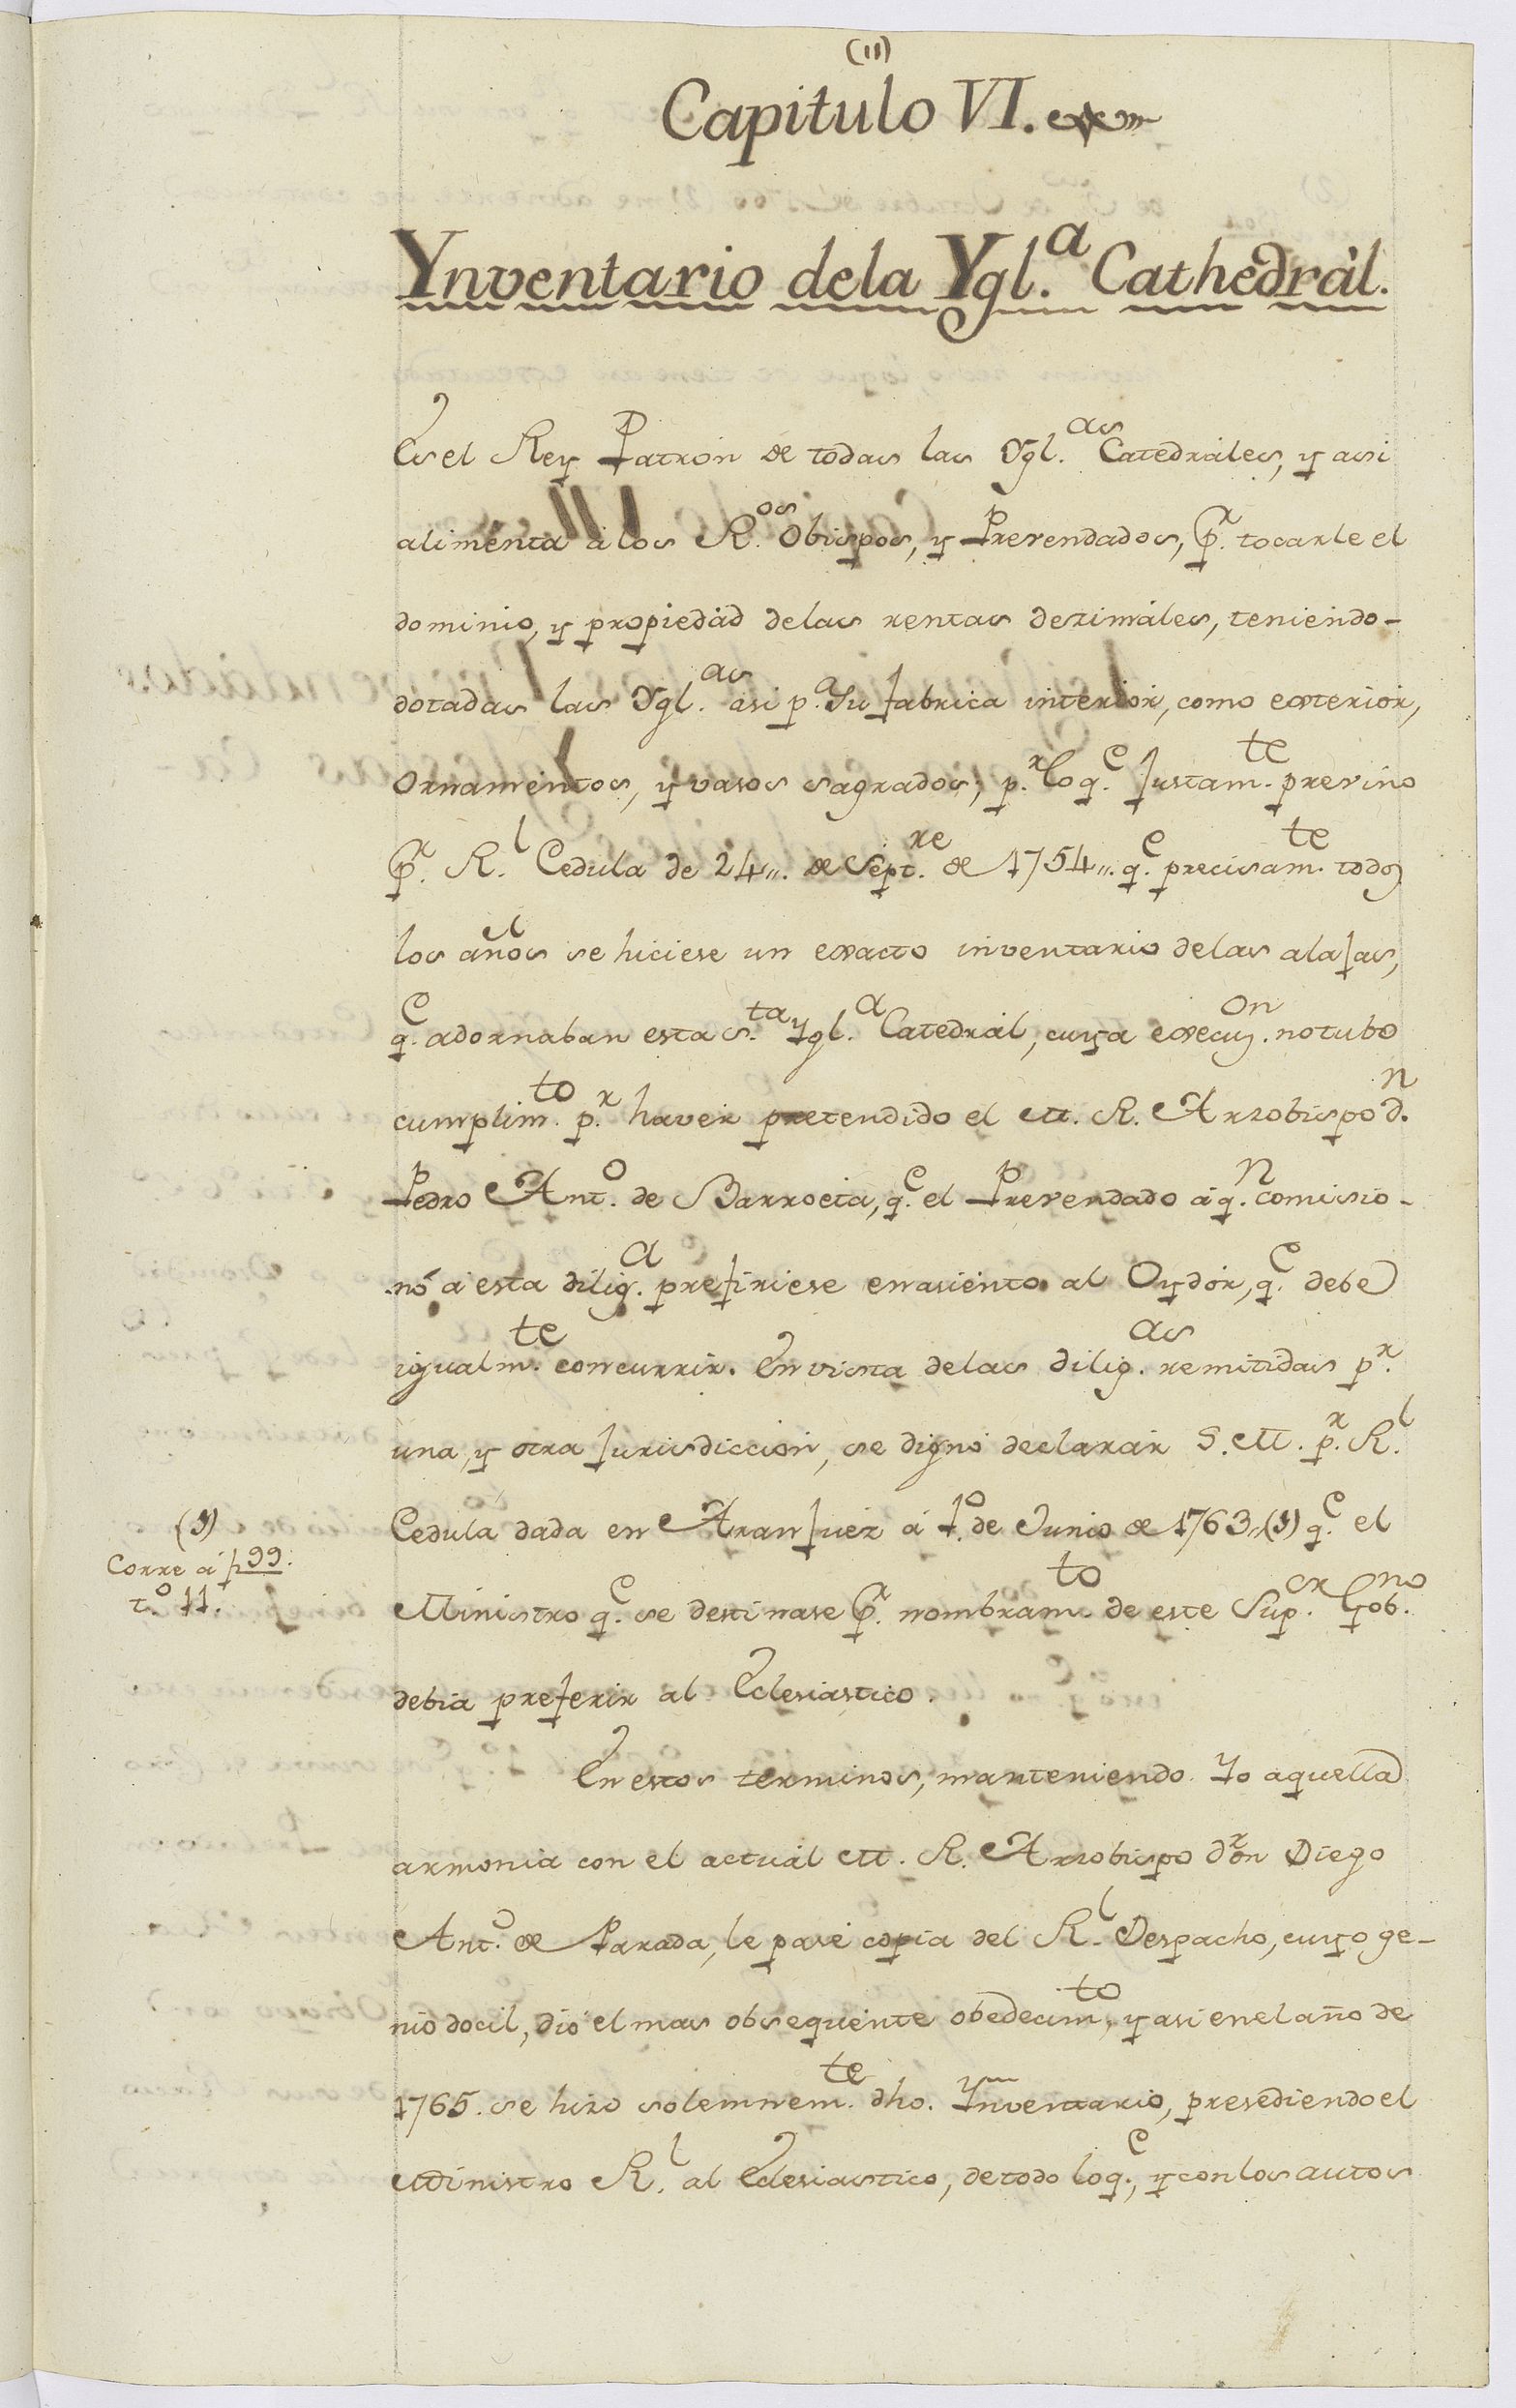 (11)
Capitulo VI.
Ynventario dela Ygl.ª Cathedrál.
Es el Rey Patrón de todas las Ygl.as Catedráles, y asi
alimenta á los R.os Obispos, y Prevendados, p.r tocarle el
dominio, y propiedád delas rentas dezimáles, teniendo-
dotadas las Ygl.as asi p.a su fabrica interiór, como exterior,
Ornamentos, y vasos sagrados; p.r lo q.e justam.te previno
p.r R.l Cedula de 24,, de Sept.re de 1754,, q.e precisam.te todos
los años se hiciese un exacto inventario delas alajas,
q.e adornaban esta S.ta Ygl.a Catedrál, cuya execuz.on no tubo
cumplim.to p.r havér pretendido el M. R. Arzobispo d.n
Pedro Ant.o de Barroeta, q.e el Prevendado á q.n comisio-
nó á esta dilig.a prefiriese en asiento al Oydór, q.e debe
igualm.te concurrir. En vista delas dilig.as remitidas p.r
una, y otra jurisdiccion, se dignó declarár S. M. p.r R.l
(1)
Corre á f 99.
t.o 11.
Cedula dada en Aranjuez á 1.o de Junio de 1763,, (1) q.e el
Ministro q.e se destinase p.r nombram.to de este Sup.or Gob.no
debia preferir al Eclesiastico.
En estos terminos, manteniendo Yo aquella
armonia con el actuál M. R. Arzobispo d.on Diego
Ant.o de Parada, le pasé copia del R.l Despacho, cuyo ge-
nio docil, dió el mas obsequente obedecim.to, y asi en el año de
1765. se hizo solemnem.te dho. Ynventario, presediendo el
Ministro R.l al Eclesiastico, de todo lo q.e, y con los autos